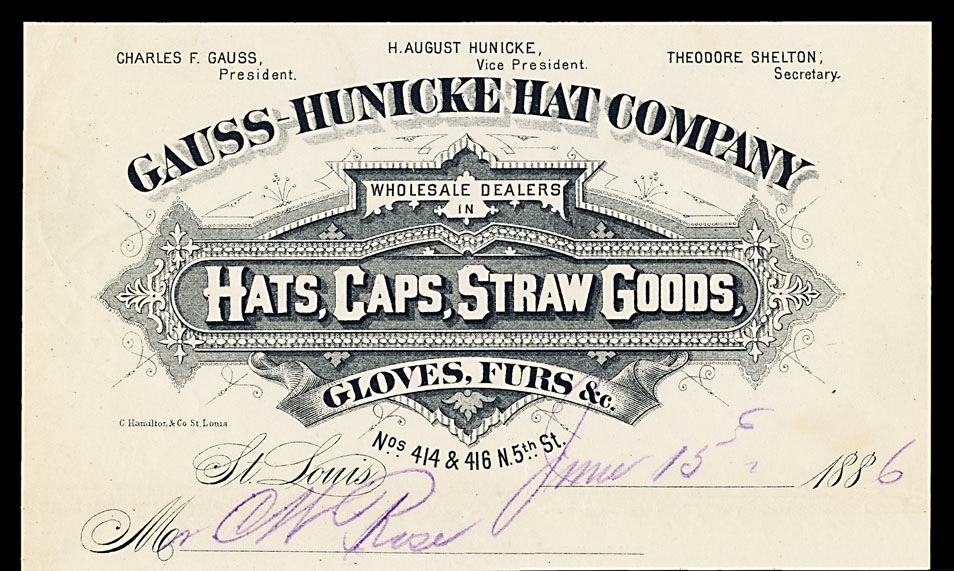 CHARLES F. GAUSS,
President.
H. AUGUST HUNICKE,
Vice President.
THEODORE SHELTON,
Secretary.
GAUSS-HUNICKE HAT COMPANY
WHOLESALE DEALERS
IN
HATS, CAPS, STRAW GOODS,
GLOVES, FURS &c.
Nos. 414 & 416 N. 5th St.
C. Hamilton & Co St. Louis
St. Louis June 15 1886
Mr Rose